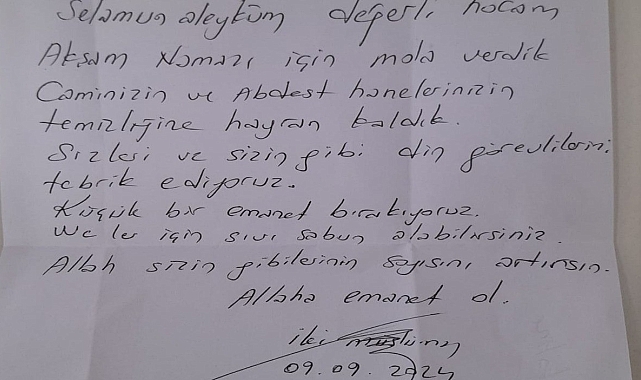 Selamun aleyküm değerli hocam
Akşam Namazı için mola verdik
Caminizin ve Abdest hanelerinizin
temizliğine hayran kaldık.
Sizlesi ve sizin gibi din görevlilerini
tebrik ediyoruz.
Küçük bir emanet bırakıyoruz.
wc ler için sıvı sabun alabilirsiniz.
Allah sizin gibilerinin sayısını artırsın.
Allaha emanet ol.
iki müslüman
09.09.2024